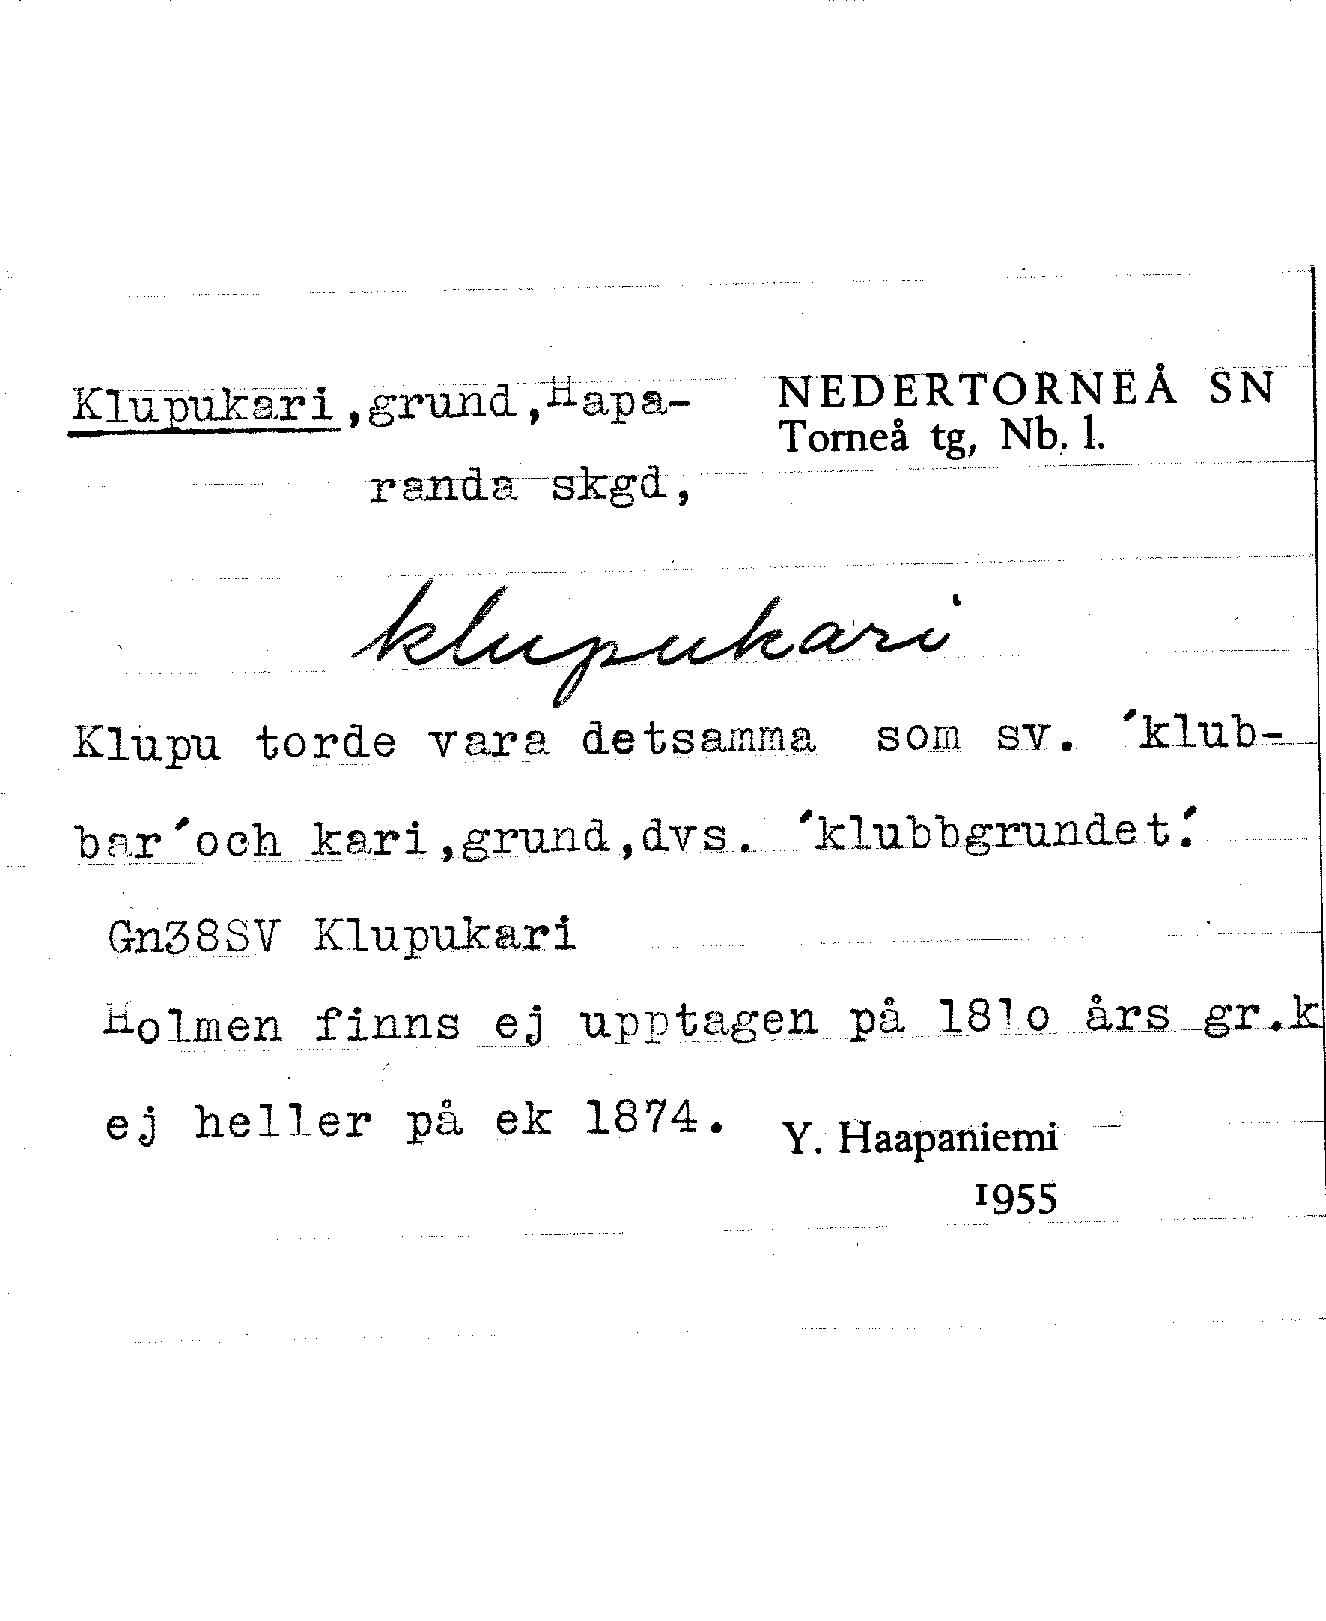 Klupukari,grund,Hapa-
randa skgd,
NEDERTORNEÅ SN
Torneå tg, Nb. l.
klupukari
Klupu torde vara detsamma som sv. ´klub-
bar´och kari,grund,dvs. ´klubbgrundet.´
Gn38SV Klupukari
Holmen finns ej upptagen på 181o års gr.k
ej heller på ek 1874.
Y. Haapaniemi
1955